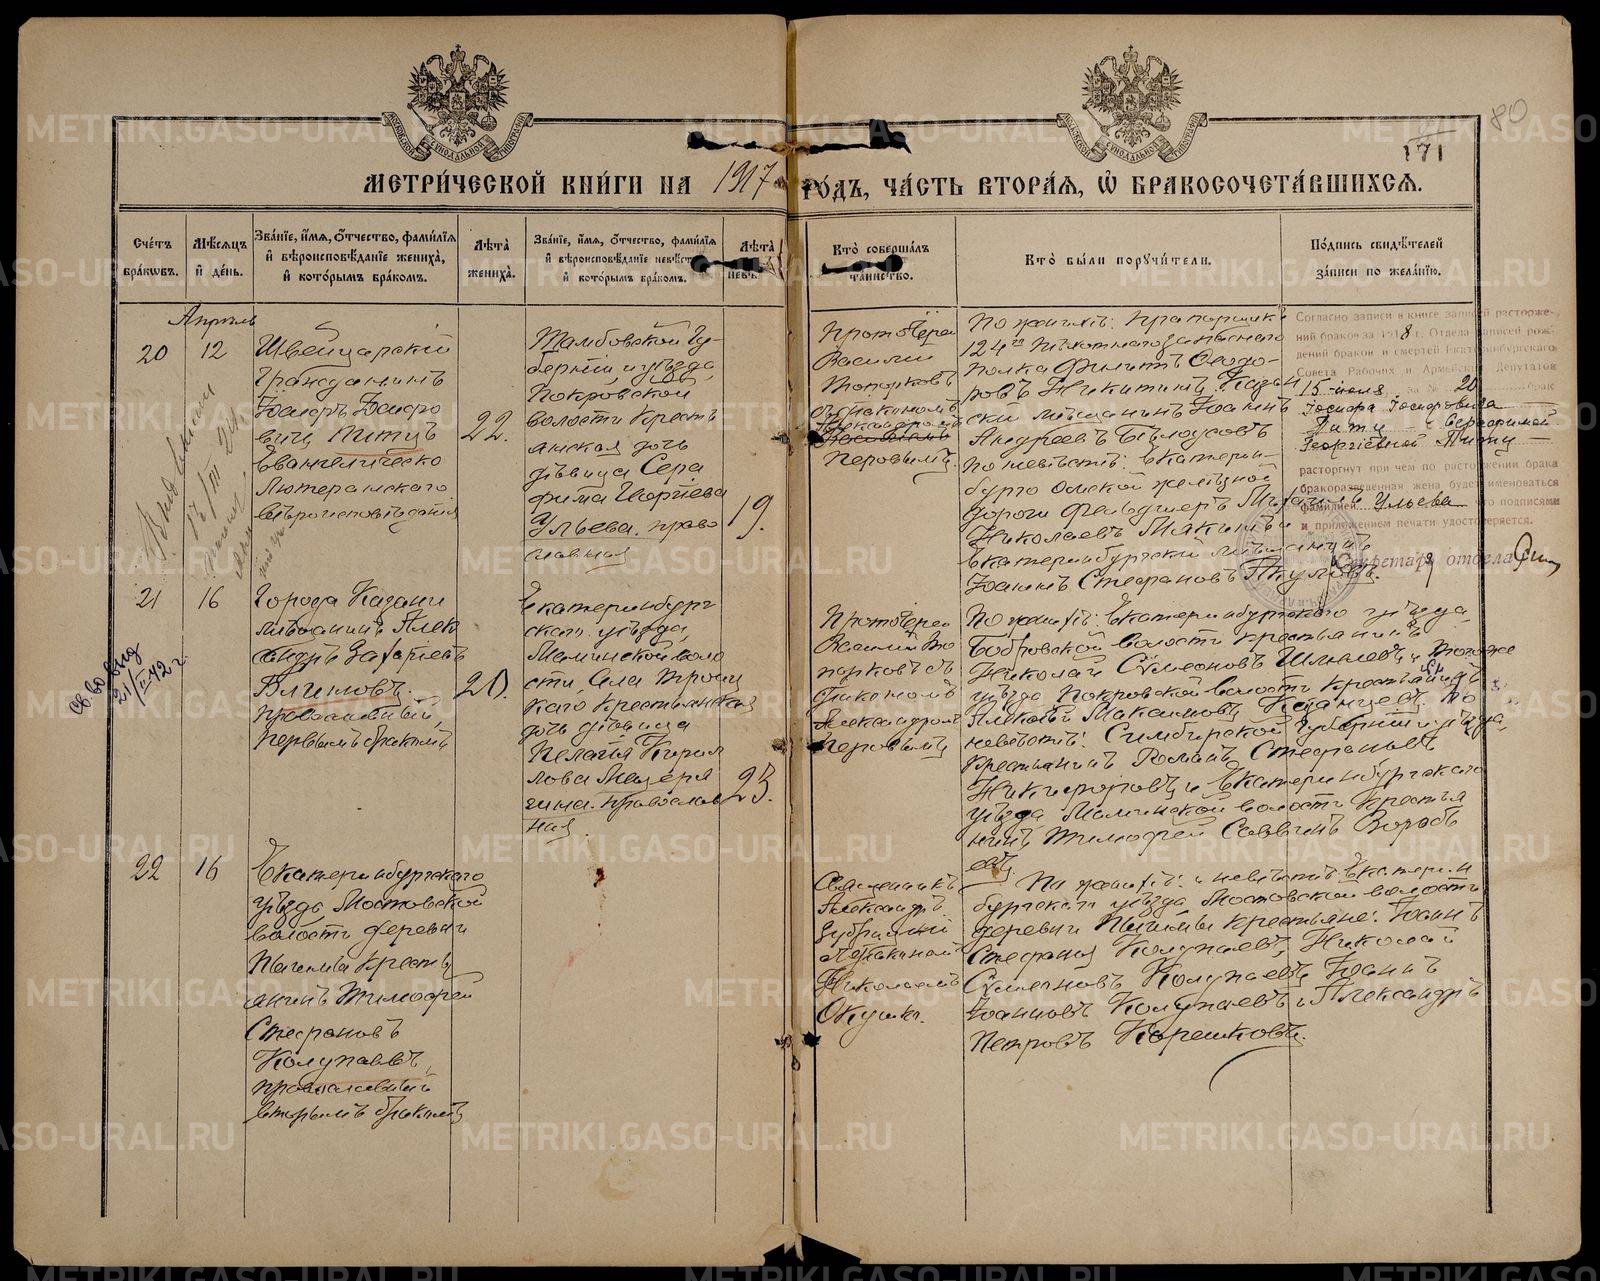 МОСКОВСКОЙ СѴНОДАЛЬНОЙ ТИПОГРАФІИ
МОСКОВСКОЙ СѴНОДАЛЬНОЙ ТИПОГРАФІИ
80
171
МЕТРИ́ЧЕСКОЙ КНИ́ГИ НА 1917 ГО́ДЪ, ЧА́СТЬ ВТОРА́Я, Ѡ БРАКОСОЧЕТА́ВШИХСЯ.
Сче́тъ бра́кѡвъ.
Мѣ́сяцъ и҆ де́нь.
Зва́нїе, и҆́мя, ѻ҆́тчество, фами́лїя и҆ вѣроисповѣ́данїе жениха̀, и҆ кото́рымъ бра́комъ.
Лѣта̀ жениха̀.
Зва́нїе, и҆́мя, ѻ҆́тчество, фами́лїя и҆ вѣроисповѣ́данїе невѣст
и҆ кото́рымъ бра́комъ.
Лѣта̀ невѣ
Кто̀ соверша́лъ та́инство.
Кто̀ бы́ли поручи́тели.
По́дпись свидѣ́телей за́писи по жела́нїю.
Апрѣль
20
12
Швейцарскій
гражданинъ
Іосифъ Іосифо
вичъ Питцъ
Евангелическо
Лютеранскаго
вѣроисповѣданія
22.
Тамбовской гу-
берніи, и уѣзда,
Покровской
волости кресть
янская дочь
дѣвица Сера
фима Георгіева
Ульева. право
славная
19.
Протоіерей
Василій
Топорковъ
съ діакономъ
Александромъ
Перовымъ
По женихѣ: Прапорщикъ
124го пѣхотнаго запаснаго
полка Филиппъ Ѳеодо-
ровъ Никитинъ, Казан
скій мѣщанинъ Іоаннъ
Андреевъ Бѣлоусовъ
по невѣстѣ: Екатерин-
бурго Омской желѣзной
дороги фельдшеръ Михаилъ
Николаевъ Мякинъ и
Екатеринбургскій мѣщанинъ
Іоаннъ Стефановъ Акуловъ.
Согласно записи в книге записей расторже-
ний браков за 1918 г. Отдела записей рож-
дений браков и смертей Екатеринбургскаго
Совета Рабочих и Армейских Депутатов
15 июля за № 20 брак
Іосифа Іосифовича
Питц и Серафимой
Георгіевной Питц
расторгнут при чем по расторжении брака
бракоразведенная жена будет именоваться
фамилией Ульева что подписями
и приложением печати удостоверяется.
Секретарь отдела
21
16
Города Казани
мѣщанинъ Алек
сандръ Захаріевъ
Блиновъ.
православный,
первымъ бракомъ
20.
Екатеринбург
скаго уѣзда,
Маминской воло
сти, села Троиц
каго крестьянская
дочь дѣвица
Пелагія Кирил
лова Мазеря
гина. православ
ная.
23.
Протоіерей
Василій То
порковъ съ
діакономъ
Александромъ
Перовымъ
По женихѣ: Екатеринбургскаго уѣзда
Бобровской волости крестьянинъ
Николай Сѵмеоновъ Шмелевъ и тогоже
уѣзда Покровской волости крестьянинъ
Алексѣй Максимовъ Казанцевъ. по
невѣстѣ: Симбирской губерніи и уѣзда,
крестьянинъ Романъ Стефановъ
Никифоровъ и Екатеринбургскаго
уѣзда Маминской волости крестья
нинъ Тимофей Саввинъ Вороб
евъ.
св. во выд
21/II-42 г.
22
16
Екатеринбургскаго
уѣзда, Мостовской
волости деревни
Пышмы кресть
янинъ Тимофей
Стефановъ
Колупаевъ,
православный
вторымъ бракомъ
Священникъ
Александръ
діакономъ
Николаемъ
По женихѣ и невѣстѣ: Екатерин
бургскаго уѣзда Мостовской волости
деревни Пышмы крестьяне: Іоаннъ
Стефановъ Колупаевъ, Николай
Сѵмеоновъ Колупаевъ, Іоаннъ
Іоанновъ Колупаевъ и Александръ
Петровъ Корешковъ.
METRIKI.GASO-URAL.RU